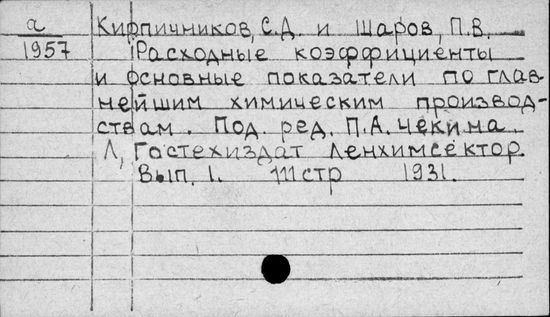 а
1957
Кирпичников, С.Д. и Шаров, П.В.
Расходные коэффициенты
и основные показатели по глав-
нейшим химическим производ-
ствам. Под. ред. П.А. Чекина.
Л, Гостехиздат Ленхимсектор.
Вып. 1. 111 стр 1931.